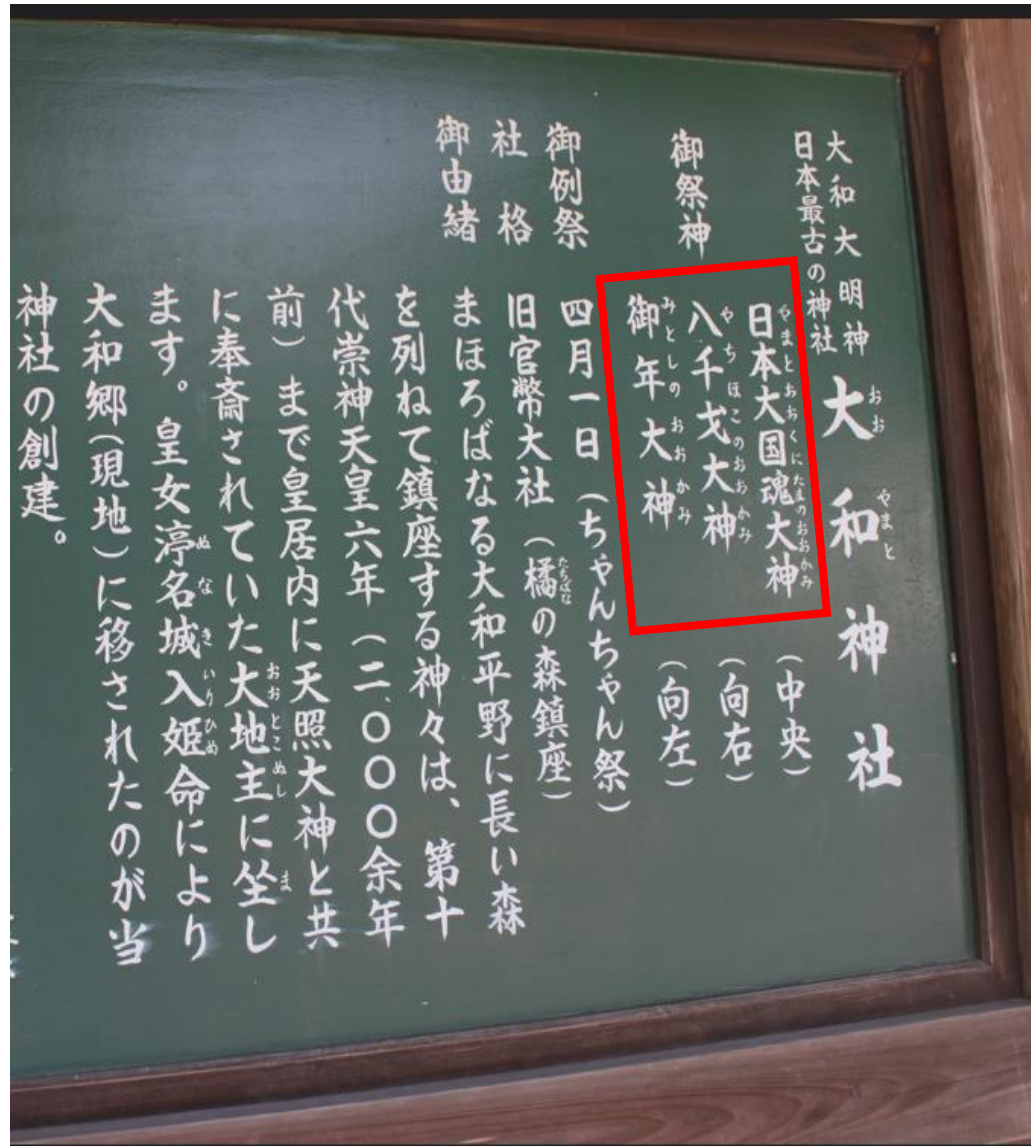 大和大明神
日本最古の神社
大和神社
おお やまと
御祭神
日本大国魂大神（中央）
やまとおおくにたまのおおかみ
八千戈大神（向右）
やちほこのおおかみ
御年大神（向左）
みとしのおおかみ
御例祭 四月一日（ちゃんちゃん祭）
社格 旧官幣大社（橘の森鎮座）
たちばな
御由緒 まほろばなる大和平野に長い森
を列ねて鎮座する神々は、第十
代崇神天皇六年（二、〇〇〇余年
前）まで皇居内に天照大神と共
に奉斎されていた大地主に坐し
おおとこぬし ま
ます。皇女渟名城入姫命により
ぬなきいりひめ
大和郷（現地）に移されたのが当
神社の創建。